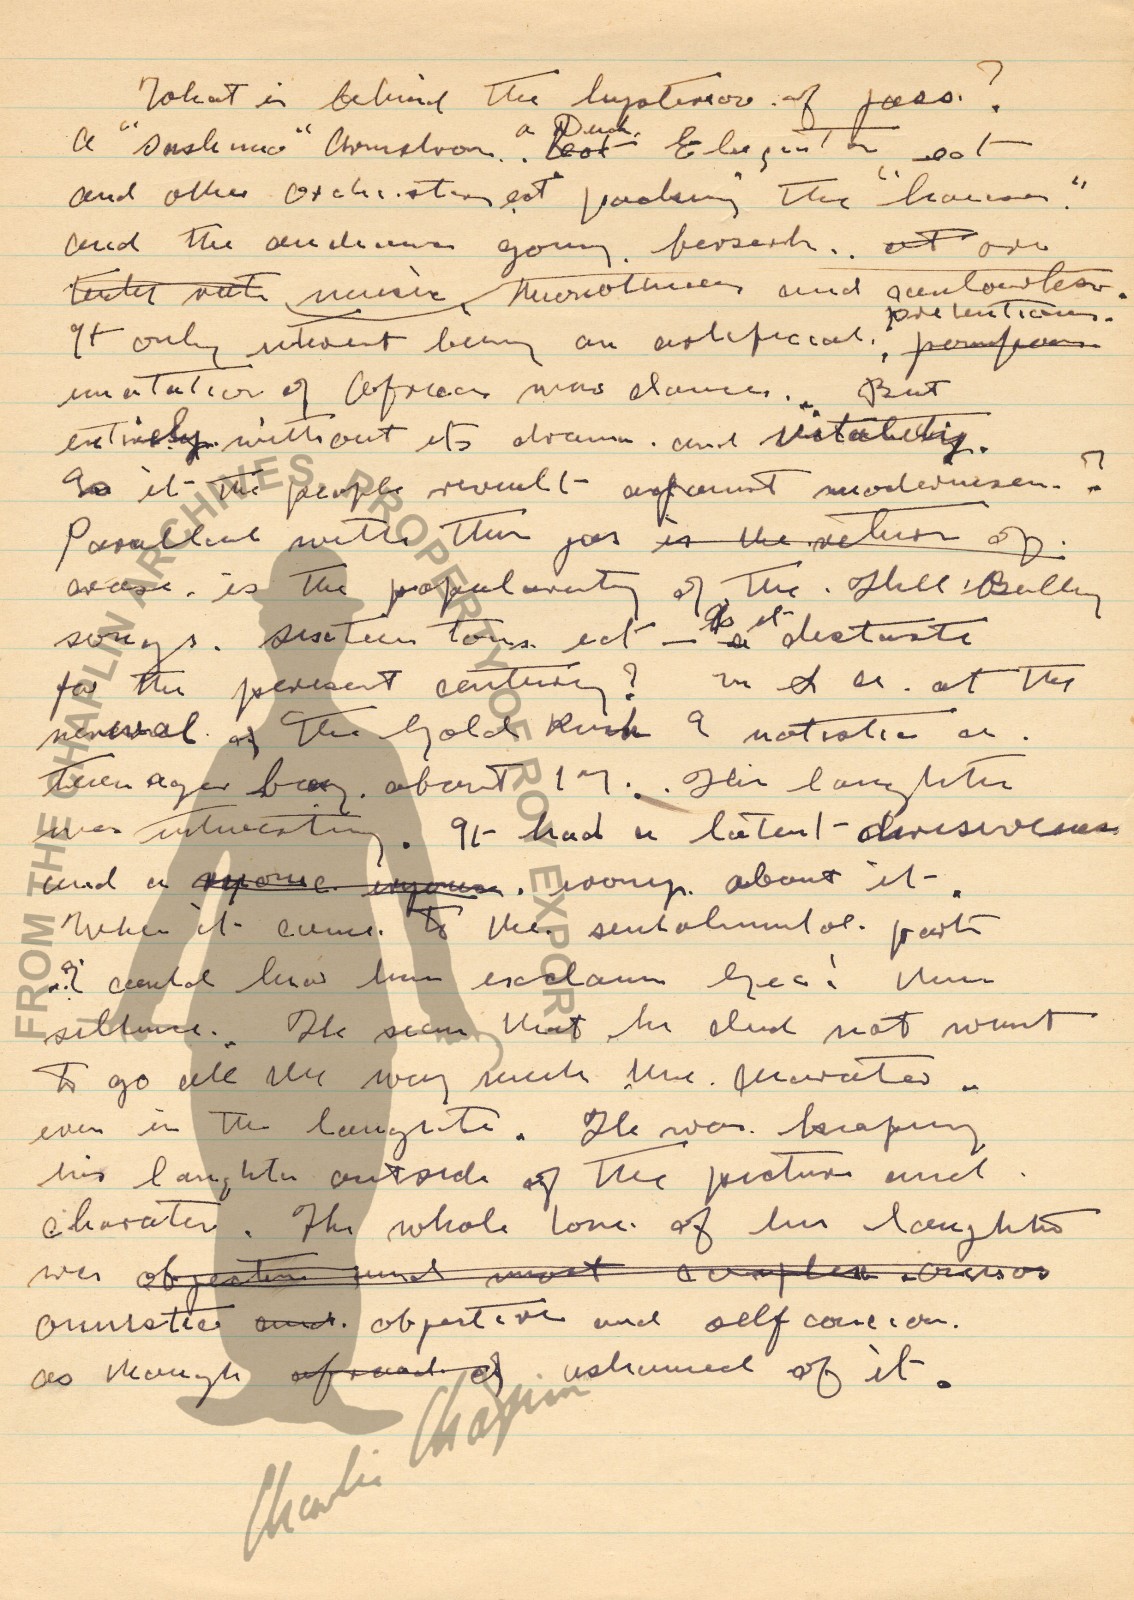 What is behind the hysteria of jass.?
A "Sashmo" Armstrong. a Duke. Elegington ect
and other orchestras ect packing the "houses"
and the audience going berserk.. at are
music, monotonous and colourless.
It only interest being an artificial. pretentious.
imatation of African war dances.. But
entirely without its drama. and vitality.
Is it the people revoult against modernism.?
Parallel with this jas is the return of.
craze. is the popularity of the. Hill Billy
songs. sixteen tons. ect — Is it distaste
for the present century? In at the
revival of The Gold Rush I notice a.
teenager boy. about 17.. His laughter
was interesting. It had a latent derisiveness
and a irony. about it.
When it came. to the. sentalmental. parts
I could hear him exclaim Gee! then
silence.. He seem that he did not want
to go all the way with the. character.
even in the laughter. He was. keeping
his laughter outside of the picture and.
charater. The whole tone. of his laughter
was objective and most complex
and. objective and self concious.
as though afraid of ashamed of it.
FROM THE CHAPLIN ARCHIVES PROPERTY OF ROY EXPORT
Charlie Chaplin